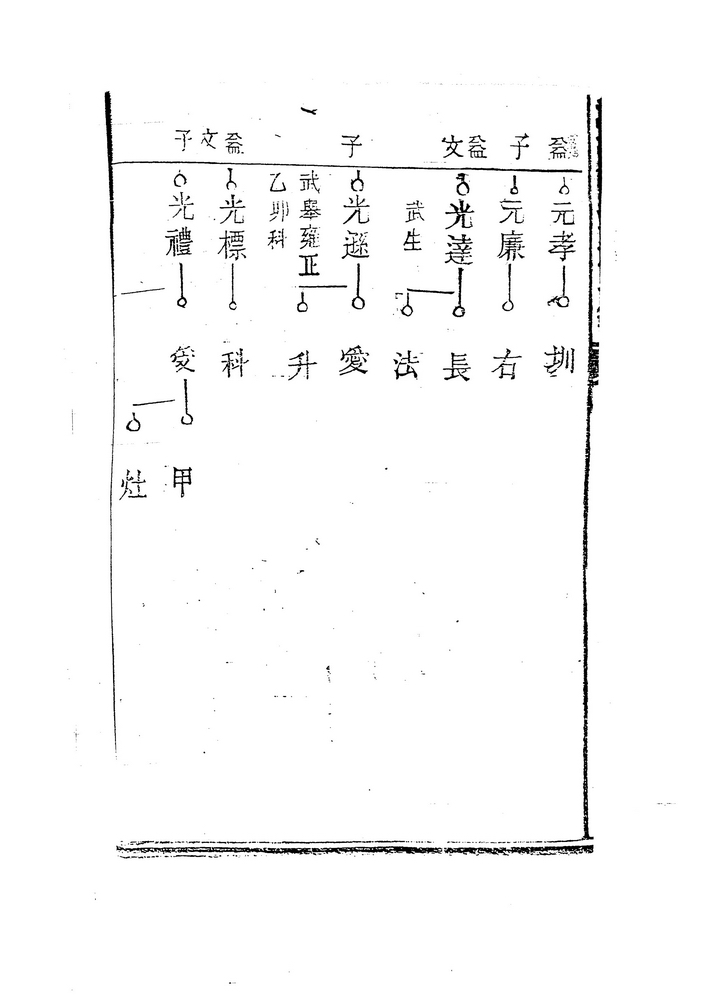 益子
益文
子
益文子
元孝
圳
元廉
右
光達
長
武生
法
光遜
愛
武舉雍正
乙卯科
升
光標
科
光禮
甲
灶